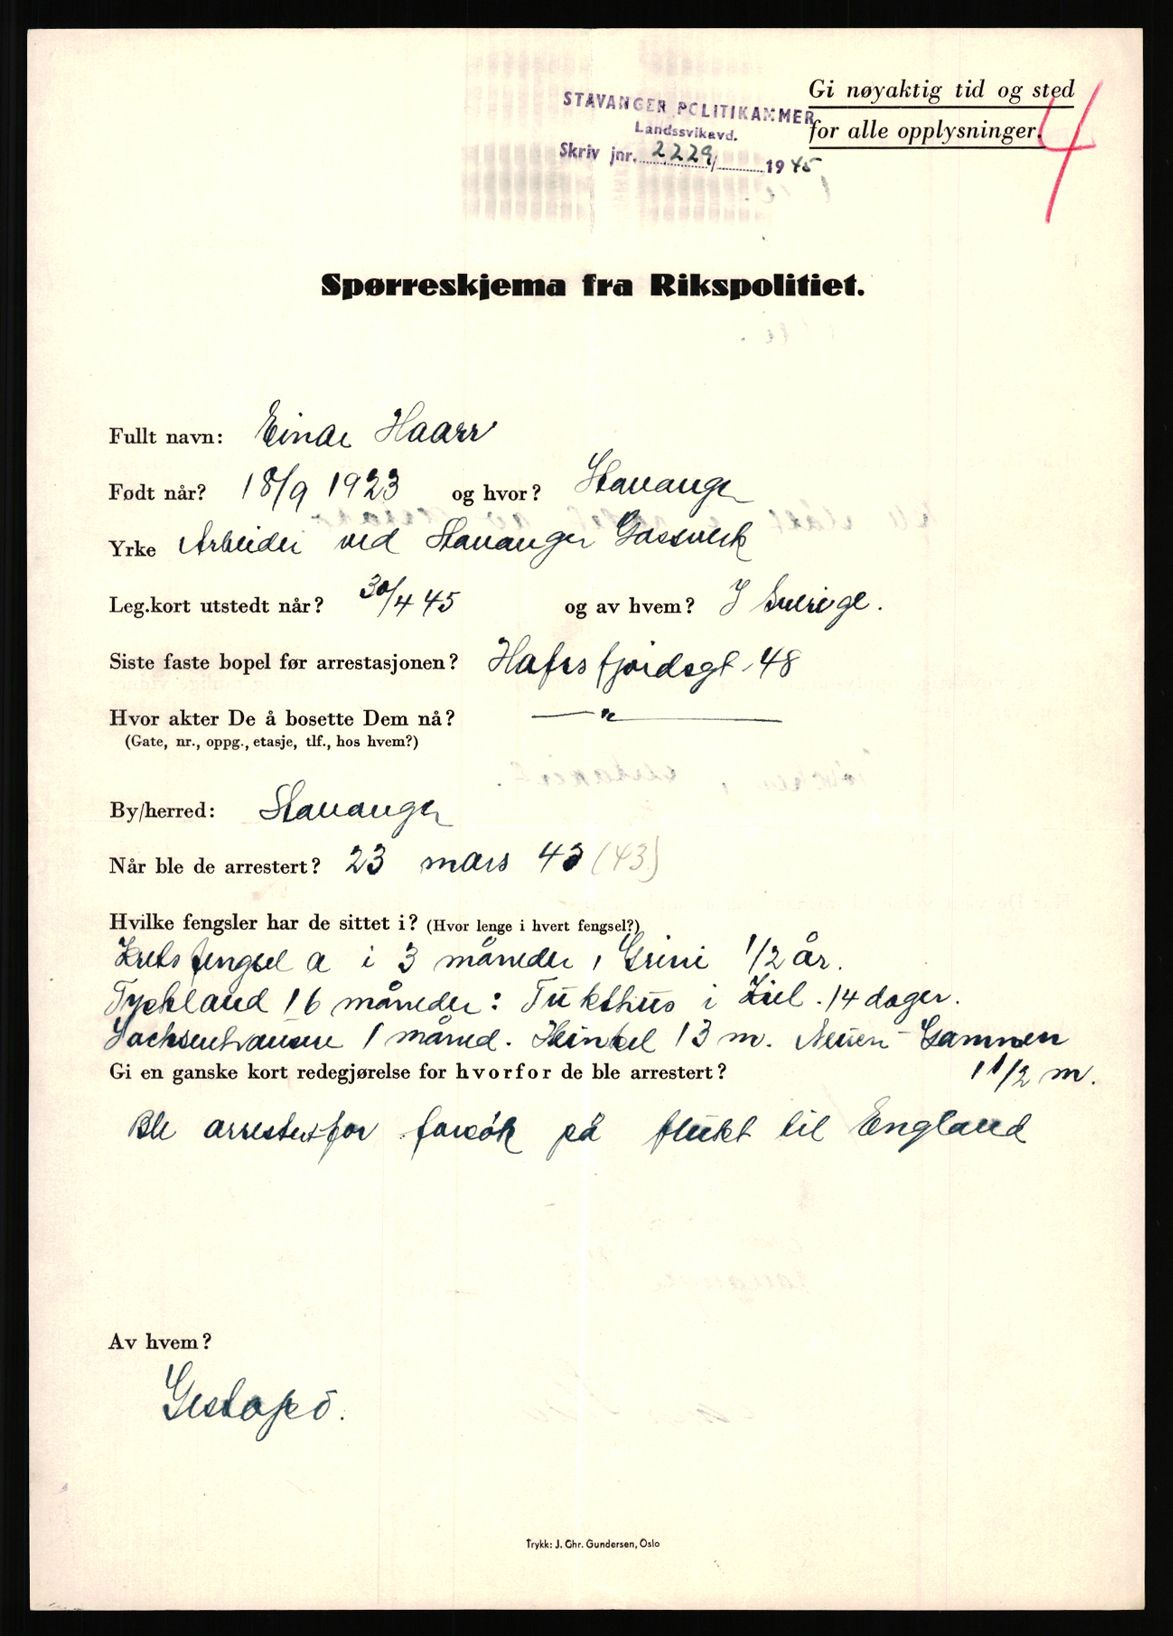 Gi nøyaktig tid og sted
for alle opplysninger.
4
STAVANGER POLITIKAMMER
Landssvikavd.
Skriv jnr. 2229/ 1945
Spørreskjema fra Rikspolitiet.
Fullt navn: Einar Haarr
Født når? 18/9 1923 og hvor? Stavanger
Yrke Arbeider ved Stavanger Gassverk
Leg.kort utstedt når? 30/4 45 og av hvem? I Sverige.
Siste faste bopel før arrestasjonen? Hafrsfjordsgt. 48
Hvor akter De å bosette Dem nå? — " —
(Gate, nr., oppg., etasje, tlf., hos hvem?)
By/herred: Stavanger
Når ble de arrestert? 23 mars 43 (43)
Hvilke fengsler har de sittet i? (Hvor lenge i hvert fengsel?)
Kretsfengsel a i 3 måneder, Grini 1/2 år.
Tyskland 16 måneder: Tukthus i Kiel. 14 dager.
Sachsenhausen 1 måned. Heinkel 13 m. Neuen-Gammen
1 1/2 m.
Gi en ganske kort redegjørelse for hvorfor de ble arrestert?
Ble arrestert for forsök på flukt til England
Av hvem?
Gestapo.
Trykk: J. Chr. Gundersen, Oslo